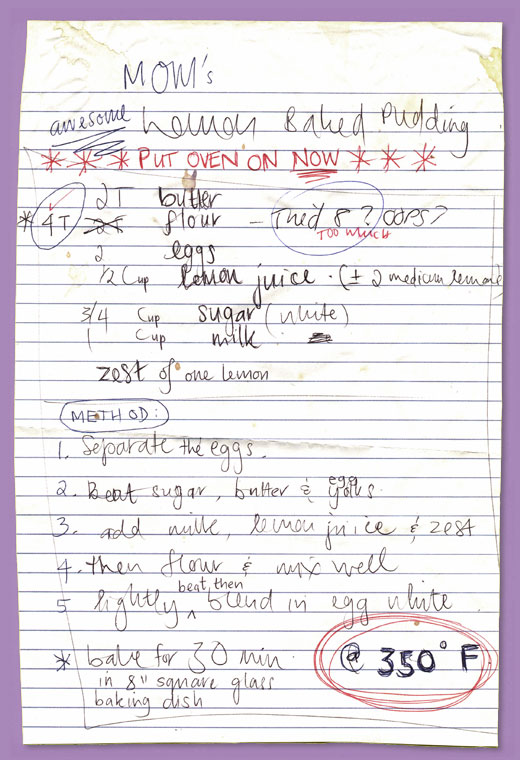 MOM's
awesome Lemon Baked Pudding
* * * PUT OVEN ON NOW * * *
2T butter
* 4T flour - Tried 8 ? oops?
TOO MUCH
2 eggs
1/2 Cup lemon juice. (± 2 medium lemons)
3/4 Cup sugar (white)
1 Cup milk
zest of one lemon
METHOD:
1. Separate the eggs.
2. Beat sugar, butter & egg yolks.
3. add milk, lemon juice & zest
4. then flour & mix well
5 lightly beat, then blend in egg white.
* bake for 30 min.
in 8" square glass
baking dish
@ 350° F